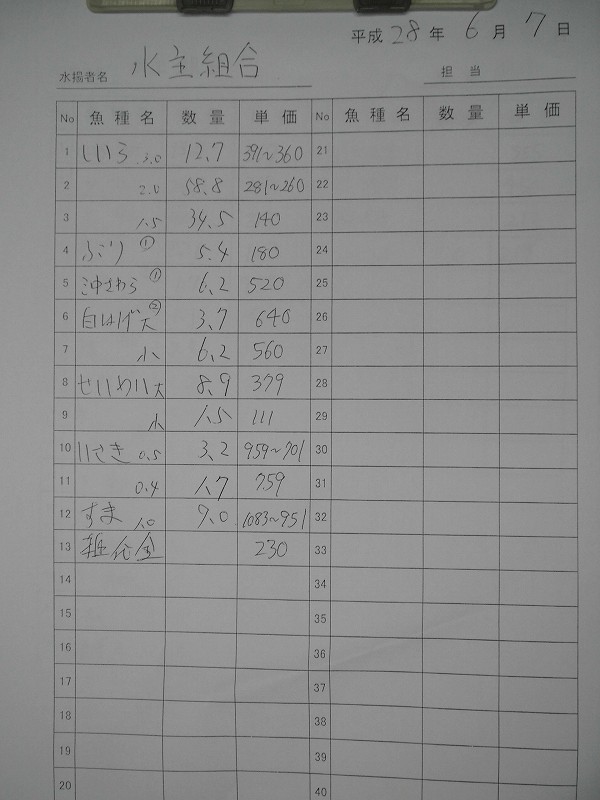 平成 28 年 6 月 7 日
水揚者名 水主組合 担当
No 魚種名 数量 単価 No 魚種名 数量 単価
1 しいら 3.0 12.7 391~360 21
2 2.0 58.8 281~260 22
3 1.5 34.5 140 23
4 ぶり① 5.4 180 24
5 沖さわら① 6.2 520 25
6 白はげ大② 3.7 640 26
7 小 6.2 560 27
8 せいめい大 8.9 379 28
9 小 1.5 111 29
10 いさき 0.5 3.2 959~701 30
11 0.4 1.7 759 31
12 すま 1.0 7.0 1083~951 32
13 代金 230 33
14 34
15 35
16 36
17 37
18 38
19 39
20 40